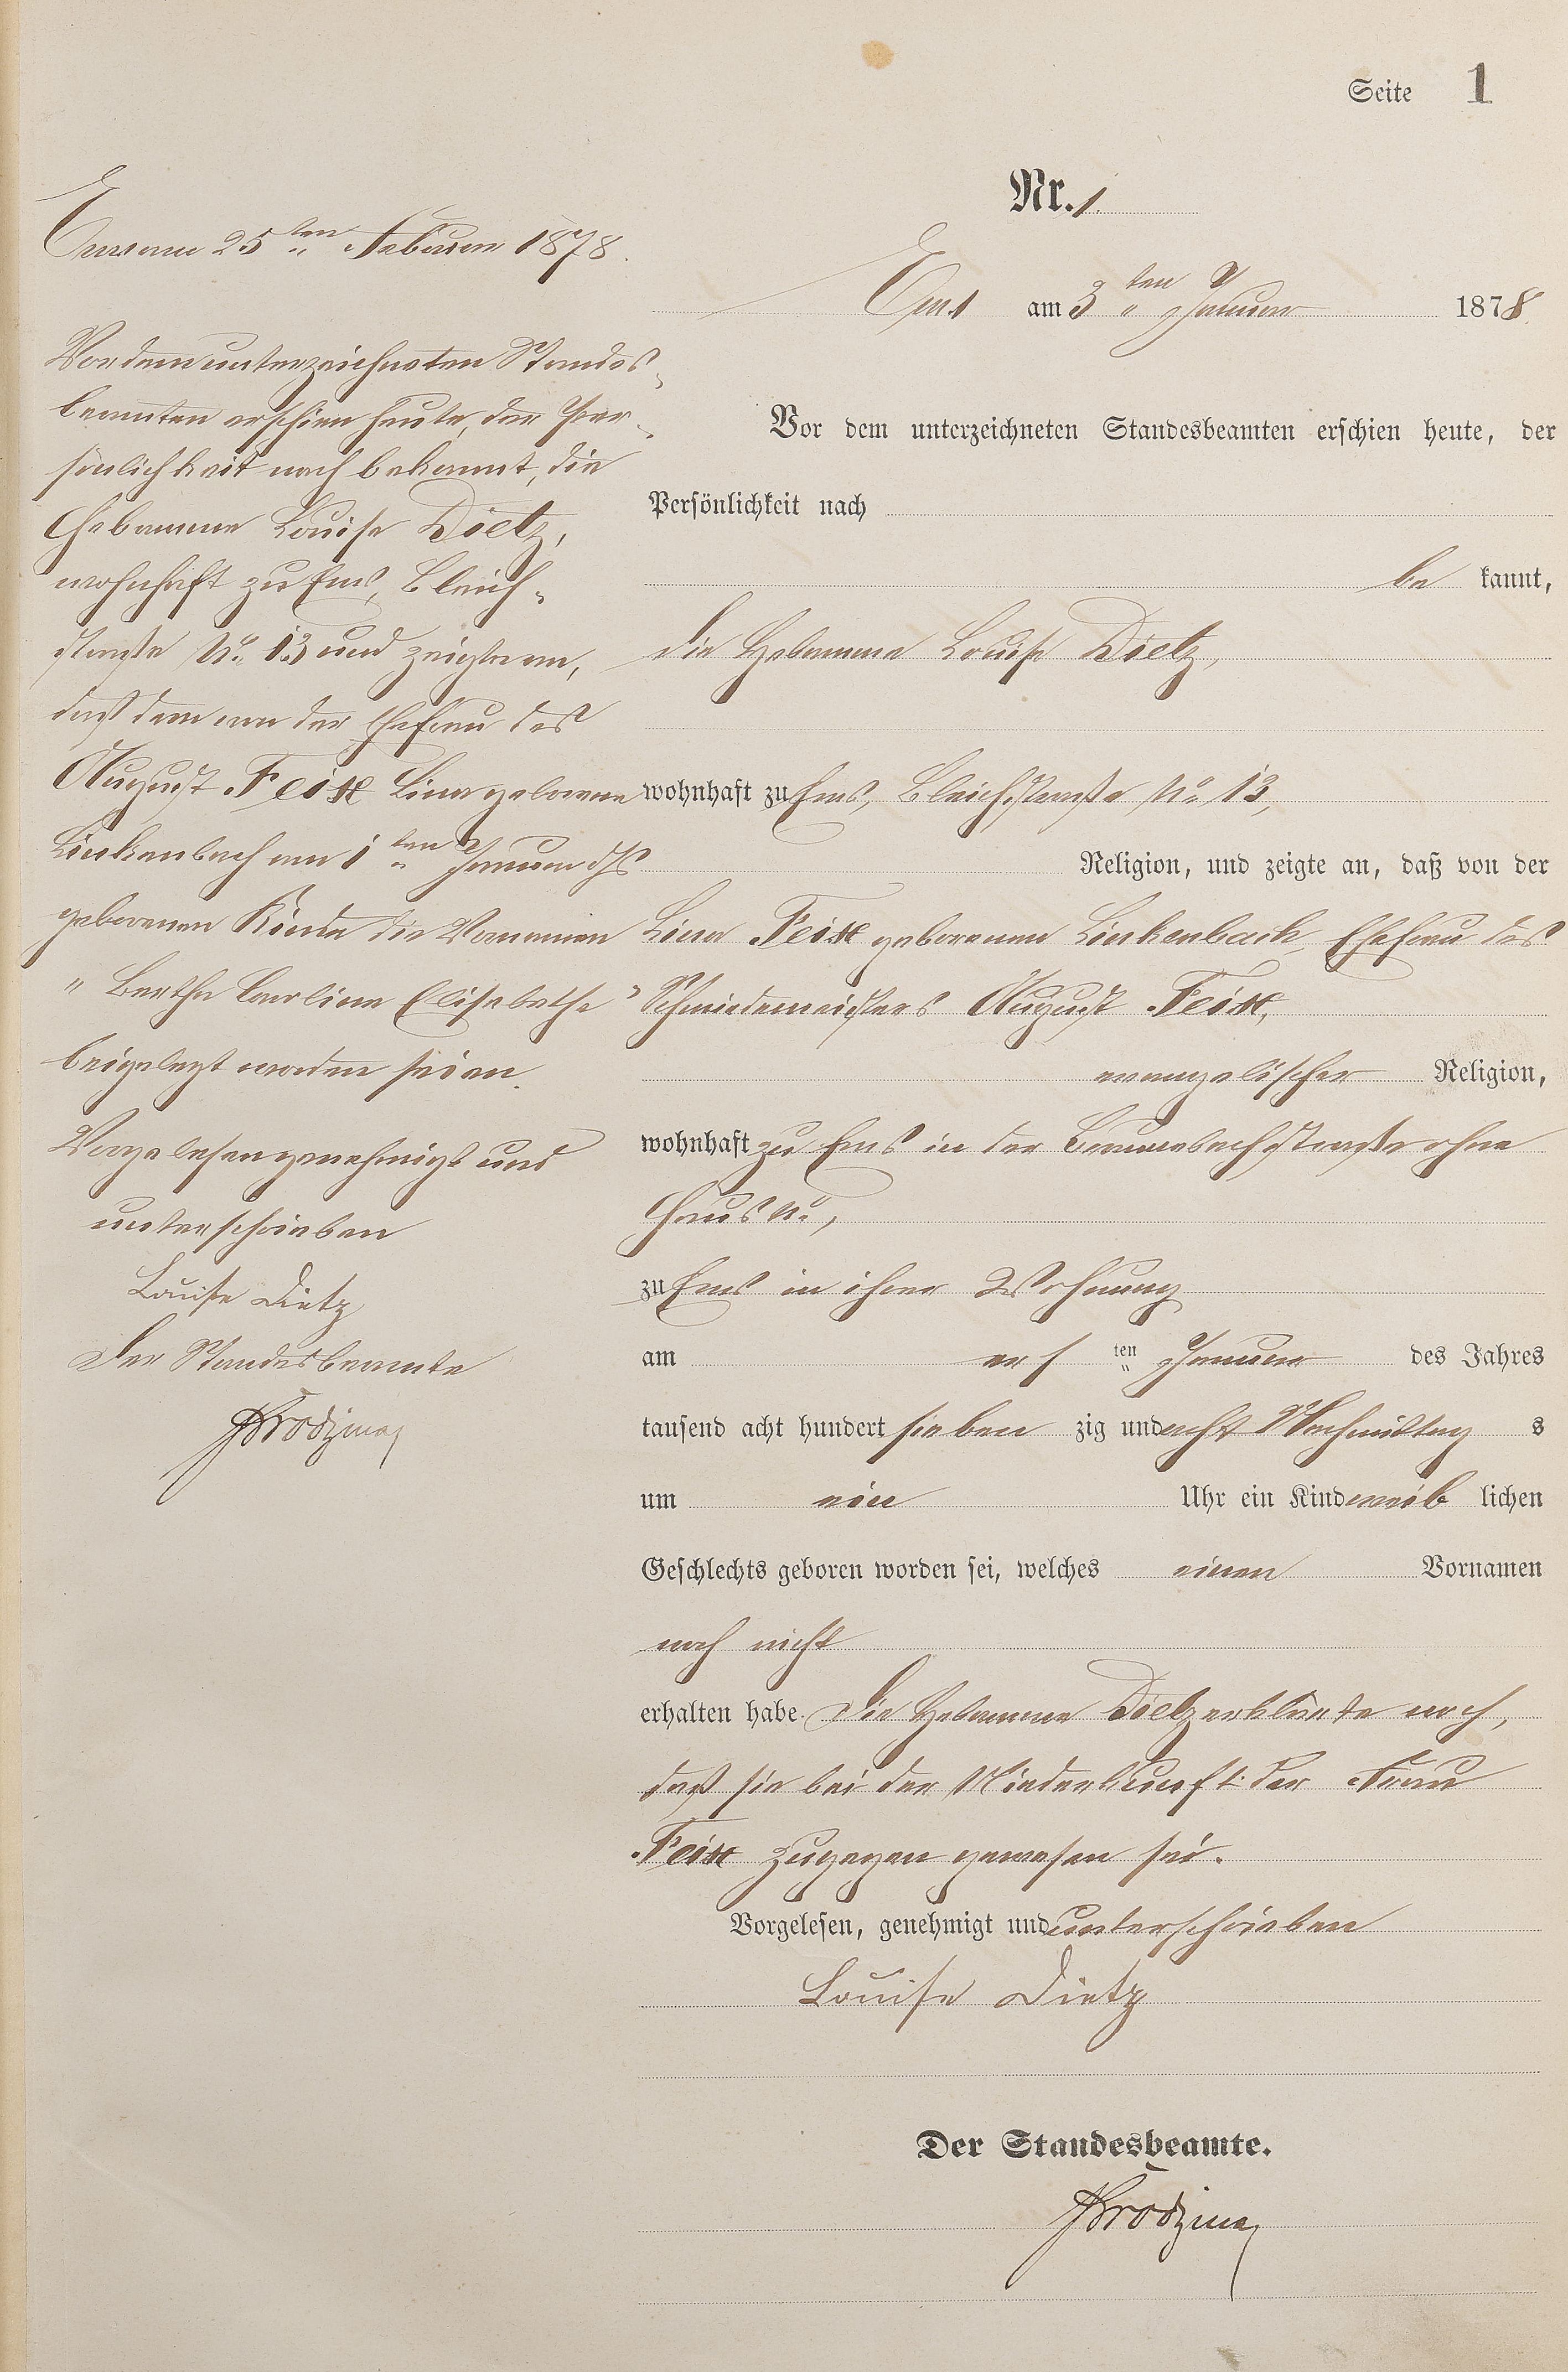 Seite 1
Nr. 1.
Ems am 25ten Februar 1878.
Vor dem unterzeichneten Standes-
beamten erschien heute, der Per-
sönlichkeit nach bekannt, die
Hebamme Louise Dietz,
wohnhaft zu Ems, Bleich-
straße No. 13 und zeigte an,
daß dem von der Ehefrau des
August Feix Lina geborene
Linkenbach am 1ten Januar d. Js.
geborenen Kinde die Vornamen
"Bertha Carline Elisabethe"
beigelegt worden seien.
Vorgelesen genehmigt und
unterschrieben
Louise Dietz
Der Standesbeamte
Ems am 3ten Januar 1878.
Vor dem unterzeichneten Standesbeamten erschien heute, der
Persönlichkeit nach
be kannt,
die Hebamme Louise Dietz,
wohnhaft zu Ems, Bleichstraße No. 13,
Religion, und zeigte an, daß von der
Lina Feix geborenen Linkenbach, Ehefrau des
Schmiedemeisters August Feix,
evangelischer Religion,
wohnhaft zu Ems in der straße ohne
Haus No.,
zu Ems in ihrer Wohnung
am ersten Januar des Jahres
tausend acht hundert sieben zig und acht Nachmittag s
um ein Uhr ein Kind weib lichen
Geschlechts geboren worden sei, welches einen Vornamen
noch nicht
erhalten habe. Die Hebamme Dietz erklärte noch,
daß sie bei der Niederkunft der Frau
Feix zugegen gewesen sei.
Vorgelesen, genehmigt und unterschrieben
Louise Dietz
Der Standesbeamte.